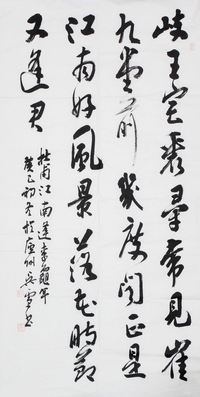 岐王宅裏尋常見崔
九堂前幾度聞正是
江南好風景落花時節
又逢君
杜甫江南逢李龜年
癸巳初冬於州書